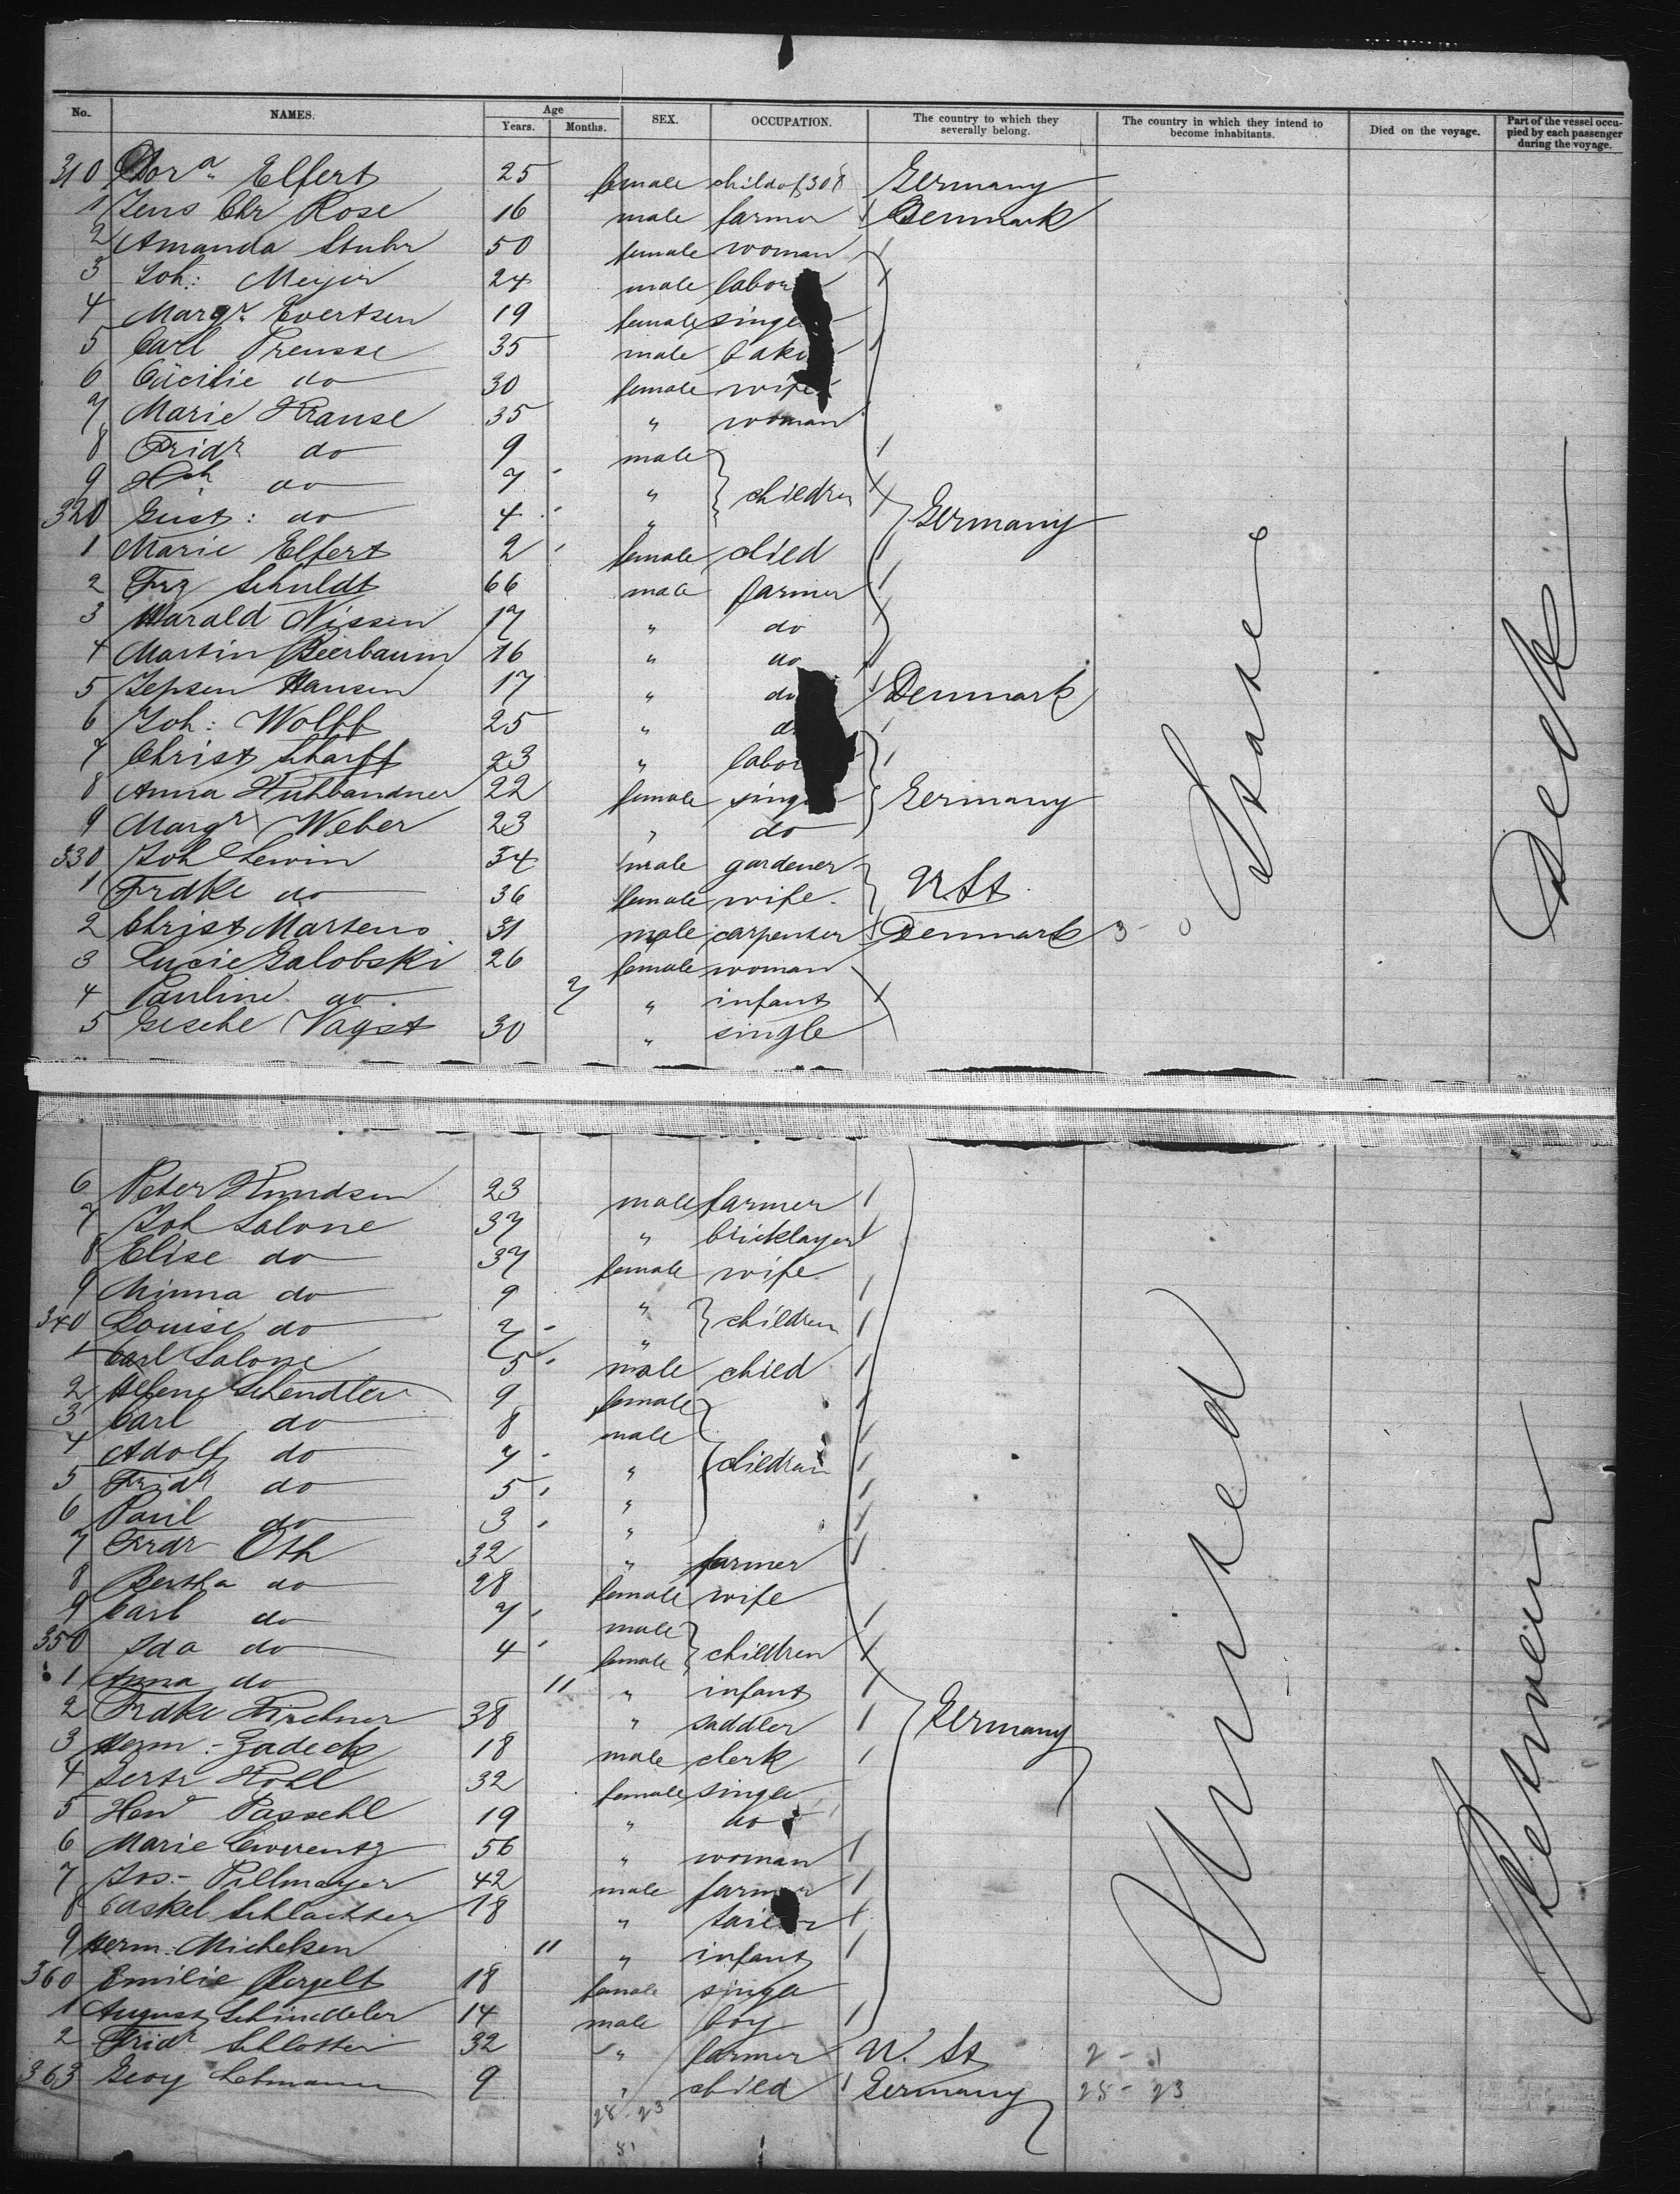 No. NAMES. Age Years. Months. SEX. OCCUPATION. The country to which they severally belong. The country in which they intend to become inhabitants. Died on the voyage. Part of the vessel occupied by each passenger during the voyage.
310 Dora Elfert 25 female child of 308 Germany
1 Jens Chr Rose 16 male farmer Denmark
2 Amanda Stuhr 50 female woman
3 Joh: Meyer 24 male labor
4 Margr. Evertsen 19 female single
5 Carl Preusse 35 male bake
6 Cäcilie do 30 female wife
7 Marie Krause 35 " woman
8 Fridr do 9 male
9 Hch do 7 " children
320 Gust: do 4 " Germany
1 Marie Elfert 2 female child
2 Frz Schuldt 66 male farmer
3 Harald Nissen 17 " do
4 Martin Beerbaum 16 " do
5 Jepsen Hansen 17 " do Denmark
6 Joh: Wolff 25 " d
7 Christ Scharff 23 " labor
8 Anna Huhbandner 22 female single Germany
9 Margr Weber 23 " do
330 Joh Lewin 34 male gardener
1 Frdke do 36 female wife. U. St
2 Christ Martens 31 male carpenter Denmark 3 - 0
3 Lucie Galobski 26 female woman
4 Pauline do. 7 " infant
5 Gesche Vagst 30 " single
6 Peter Knudsen 23 male farmer
7 Joh Salone 37 " bricklayer
8 Elise do 37 female wife
9 Minna do 9 "
340 Louise do 7 " children
1 Carl Salone 5 male child
2 Helene Schendler 9 female
3 Carl do 8 male
4 Adolf do 7 " children
5 Fridr do 5 "
6 Paul do 3 "
7 Frdr Oth 32 " farmer
8 Bertha do 28 female wife
9 Carl do 7 male
350 Ida do 4 female children
1 Anna do 11 " infant
2 Frdke Kirchner 38 " saddler Germany
3 Herm: Zadeck 18 male clerk
4 Gertr Kohl 32 female single
5 Henr Passehl 19 " do
6 Marie Lworentz 56 " woman
7 Jos:- Pillmayer 42 male farmer
8 Caskel Schlachter 18 " tailor
9 Herm: Michelsen 11 " infant
360 Emilie Bergelt 18 female single
1 August Schindeler 14 male boy
2 Fridr Schlotter 32 " farmer U. St 2 - 1
363 Georg Lehmann 9 " child Germany 28 - 23
28 - 23
51
United States
Between Decks